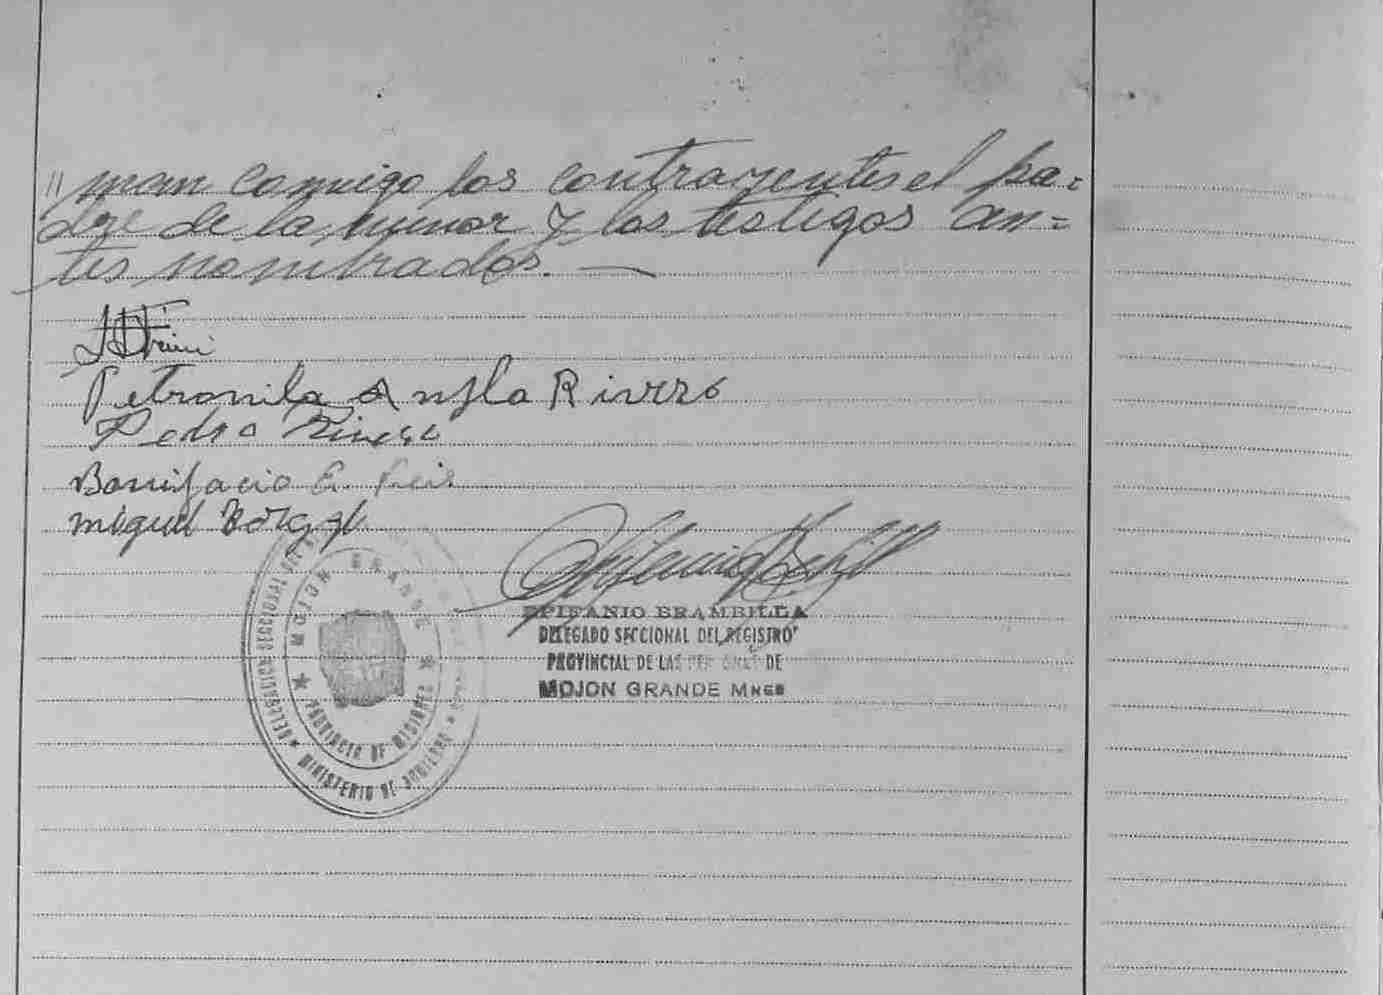 "man conmigo los contrayentes el pa=
dre de la menor y los testigos an=
tes nombrados. —
Petronila Angla Rivero
Pedro Rivero
Bonifacio E.
Miguel
EPIFANIO BRAMBILLA
DELEGADO SECCIONAL DEL REGISTRO
PROVINCIAL DE LAS PERSONAS DE
MOJON GRANDE MNES
DELEGACION SECCIONAL DEL
MOJON GRANDE
★ PROVINCIA DE MISIONES ★
MINISTERIO DE